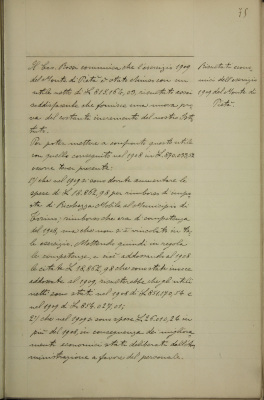 75
Il Cav. Rossi comunica che l'esercizio 1909
del Monte di Pietà è stato chiuso con un
utile netto di L. 815.176,03, risultato assai
soddisfacente che fornisce una nuova pro
va del costante incremento del nostro Isti
tuto.
Per poter mettere a confronto questo utile
con quello conseguito nel 1908 in L.
occorre tener presente:
1°) che nel 1909 si sono dovute aumentare le
spese di L. 18.852,98 per rimborso di impo
sta di Ricchezza Mobile al Municipio di
Torino, rimborso che era di competenza
del 1908, ma che non si è
esercizio. Mettendo quindi in regola
le competenze, e cioè addossando al 1908
le citate L. 18.852,98 che sono state invece
addossate al 1909, risulterebbe che gli utili
netti sono stati nel 1908 di L. e
nel 1909 di L.
2°) che nel 1909 si sono spese L. 25.010,26 in
più del 1908, in conseguenza dei migliora
menti economici stati deliberati dall'Am
ministrazione a favore del personale.
Risultati econo
mici dell'esercizio
1909 del Monte di
Pietà.